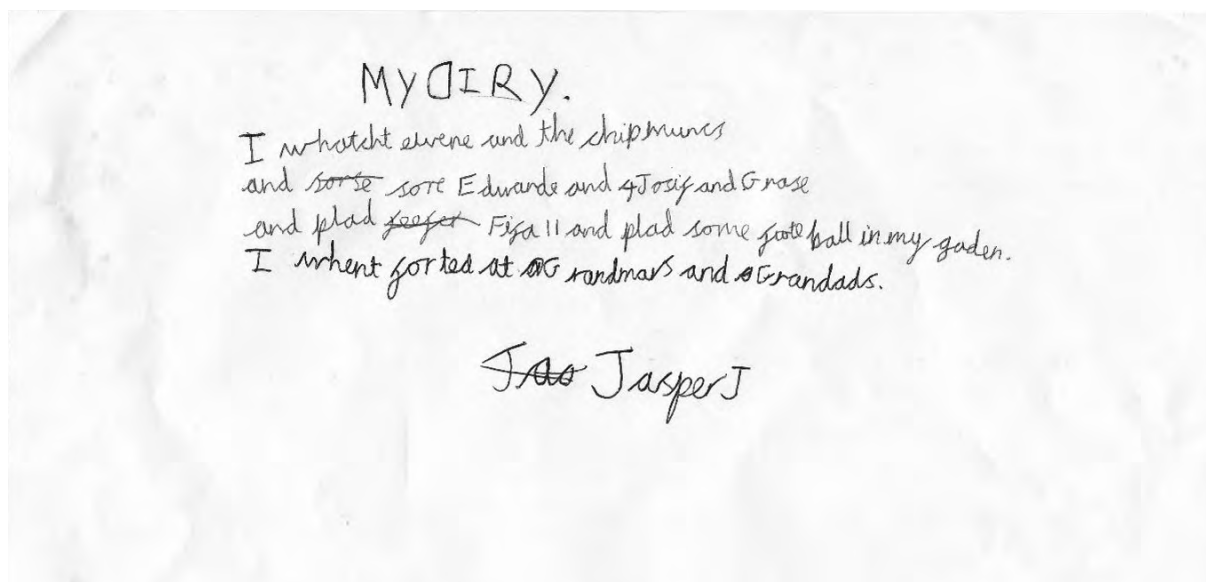 MY DIRY.
I whatcht elvene and the chipmuncs
and sorse sore Edwarde and Josif and Grase
and plad feefer Fifa 11 and plad some foote ball in my gaden.
I whent for ted at Grandmars and Grandads.
Jao Jasper J